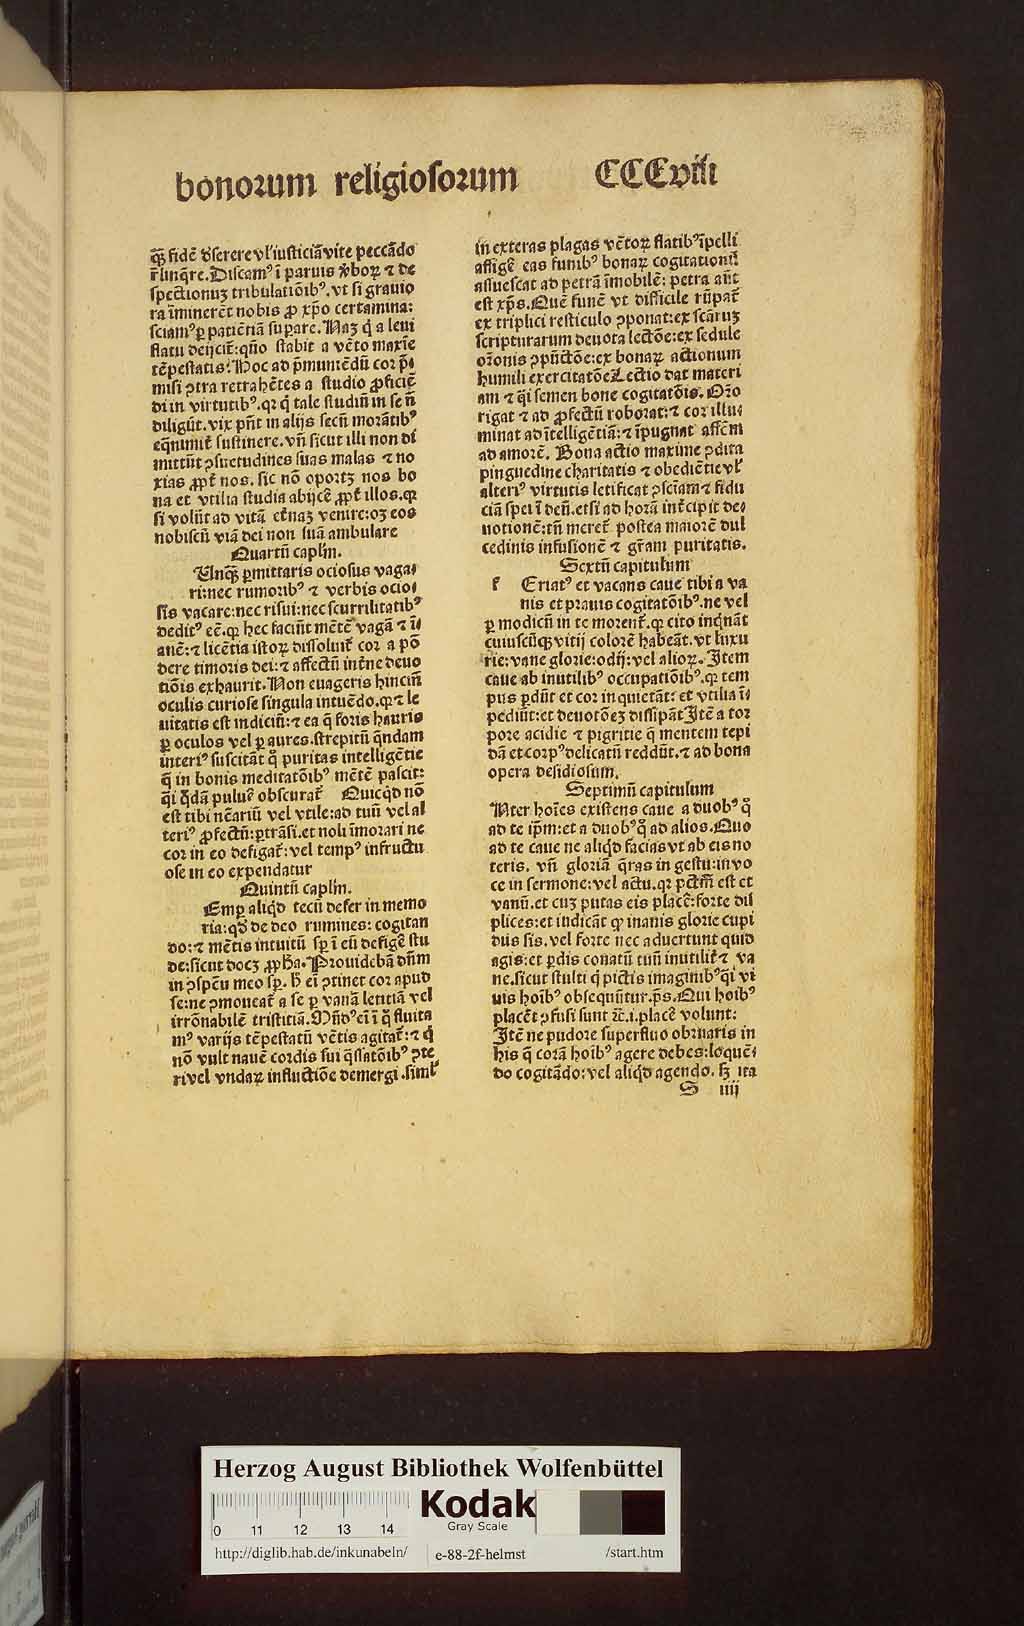 bonoꝛum religioſoꝛum CCCviiii
ꝙ̄ fidē ð̓ſerere vl̓ iuſticiā vite peccādo
r̄linq̄re. Diſcamꝰ ī paruis v̓boꝝ ⁊ de
ſpectionuꝫ tribulatiōibꝰ. vt ſi grauio
ra īminerēt nobis ꝓ xp̄o certamina:
ſciamꝰ ꝑ patiētiā ſuꝑare. Naꝫ q̇ a leui
flatu deijcit̄: qn̄o ſtabit a vēto maxīe
tēpeſtatis? Hoc ad p̄muniēdū cor p̄
miſi ꝯtra retrahētes a ſtudio ꝓficiē
di in virtutibꝰ. qꝛ q̇ tale ſtudiū in ſe nō
diligūt. vix pn̄t in alijs ſecū moꝛātibꝰ
eq̄nimit̄ ſuſtinere. vn̄ ſicut illi non di
mittūt ꝯſuetudines ſuas malas ⁊ no
xias ꝓpt̄ nos. ſic nō opoꝛtꝫ nos bo
na et vtilia ſtudia abijcē ꝓpt̄ illos. qꝛ
ſi volūt ad vitā et̄naꝫ venire: oꝫ eos
nobiſcū viā dei non ſuā ambulare
Quartū capl̄m.
Unqꝫ ꝑmittaris ocioſus vaga⸗
ri: nec rumoꝛibꝰ ⁊ verbis ocio⸗
ſis vacare: nec riſui: nec ſcurrilitatibꝰ
deditꝰ eē. qꝛ hec faciūt mētē vagā ⁊ i⸗
anē: ⁊ licētia iſtoꝝ diſſoluit̄ coꝛ a pō
dere timoꝛis dei: ⁊ affectū int̄ne deuo
tiōis exhaurit. Non euageris hincin̄
oculis curioſe ſingula intuēdo. qꝛ ⁊ le
uitatis eſt indiciū: ⁊ ea q̄ foꝛis hauris
ꝑ oculos vel ꝑ aures. ſtrepitū q̄ndam
interiꝰ ſuſcitāt q̊ puritas intelligētie
q̄ in bonis meditatōibꝰ mētē paſcit:
q̄i q̇dā puluē obſcurat̄ Quicq̇d nō
eſt tibi nc̄ariū vel vtile: ad tuū vel al
teriꝰ ꝓfectū: ꝑtrāſi. et noli īmoꝛari ne
coꝛ in eo defigat̄: vel tempꝰ infructu
oſe in eo expendatur
Quintū capl̄m.
Emp̱ aliq̇d tecū defer in memo
ria: qd̓ de deo rumines: cogitan
do: ⁊ mētis intuitū ſp̱ ī eū defigē ſtu
de: ſicut docꝫ ꝓph̄a. Prouidebā dn̄m
in ꝯſpc̄u meo ſp̱. h̄ ei ꝯtinet coꝛ apud
ſe: ne ꝯmoueat̄ a ſe ꝑ vanā letitiā vel
irrōnabilē triſtitiā. Mūdꝰ ei ī q̊ fluita
mꝰ varijs tēpeſtatū vētis agitat̄: ⁊ q̇
nō vult nauē coꝛdis ſui q̄ſſatōibꝰ ꝯte
ri vel vndaꝝ influctiōe demergi. ſimꝉ
in exteras plagas vētoꝝ flatibꝰ īpelli
affigē eas funibꝰ bonaꝝ cogitationū
aſſueſcat ad petrā īmobilē: petra aūt
eſt xp̄s. Quē funē vt difficile rūpat̄
ex triplici reſticulo ꝯponat: ex ſcāruꝫ
ſcripturarum deuota lectōe: ex ſedule
oꝛōnis ꝯpūctōe: ex bonaꝝ actionum
humili exercitatōe Lectio dat materi
am ⁊ q̄i ſemen bone cogitatōis. Oꝛo
rigat ⁊ ad ꝓfectū roboꝛat: ⁊ coꝛ illu⸗
minat ad ītelligētiā: ⁊ īpugnat affēm
ad amoꝛē. Bona actio maxime ꝯdita
pinguedine charitatis ⁊ obediētie vl̓
alteriꝰ virtutis letificat ꝯſciam ⁊ fidu
ciā ſpei ī deū. et ſi ad hoꝛā int̄cipit de⸗
uotionē: tn̄ meret̄ poſtea maioꝛē dul
cedinis infuſionē ⁊ gr̄am puritatis.
Sextū capitulum
f Eriatꝰ et vacans caue tibi a va
nis et pꝛauis cogitatōibꝰ. ne vel
ꝑ modicū in te moꝛent̄. qꝛ cito inq̇nāt
cuiuſcūqꝫ vitij coloꝛē habeāt. vt luxu
rie: vane gloꝛie: odij: vel alioꝝ. Item
caue ab inutilibꝰ occupatiōibꝰ. qꝛ tem
pus ꝑdūt et coꝛ inquietāt: et vtilia i⸗
pediūt: et deuotōeꝫ diſſipāt Itē a toꝛ
poꝛe acidie ⁊ pigritie q̄ mentem tepi
dā et coꝛpꝰ delicatū reddūt. ⁊ ad bona
opera deſidioſum.
Septimū capitulum
Nter hoīes exiſtens caue a duobꝰ q̊
ad te ip̄m: et a duobꝰ q̊ ad alios. Quo
ad te caue ne aliq̇d facias vt ab eis no
teris. vn̄ gloꝛiā q̄ras in geſtu: in vo
ce in ſermone: vel actu. qꝛ pctm̄ eſt et
vanū. et cuꝫ putas eis placē: foꝛte diſ
plices: et iudicāt ꝙ inanis gloꝛie cupi
dus ſis. vel foꝛte nec aduertunt quid
agis: et ꝑdis conatū tuū inutilit̄ ⁊ va
ne. ſicut ſtulti q̇ pictis imaginibꝰ q̄i vi
uis hoībꝰ obſequūtur. pꝰ. Qui hoībꝰ
placēt ꝯfuſi ſunt ⁊c̄. i. placē volunt:
Itē ne pudoꝛe ſuperfluo obꝛuaris in
his q̄ coꝛā hoībꝰ agere debes: loquē⸗
do cogitādo: vel aliq̇d agendo. ſꝫ ita
S iiij
Herzog August Bibliothek Wolfenbüttel
0 11 12 13 14
Kodak
Gray Scale
http://diglib.hab.de/inkunabeln/ e-88-2f-helmst /start.htm